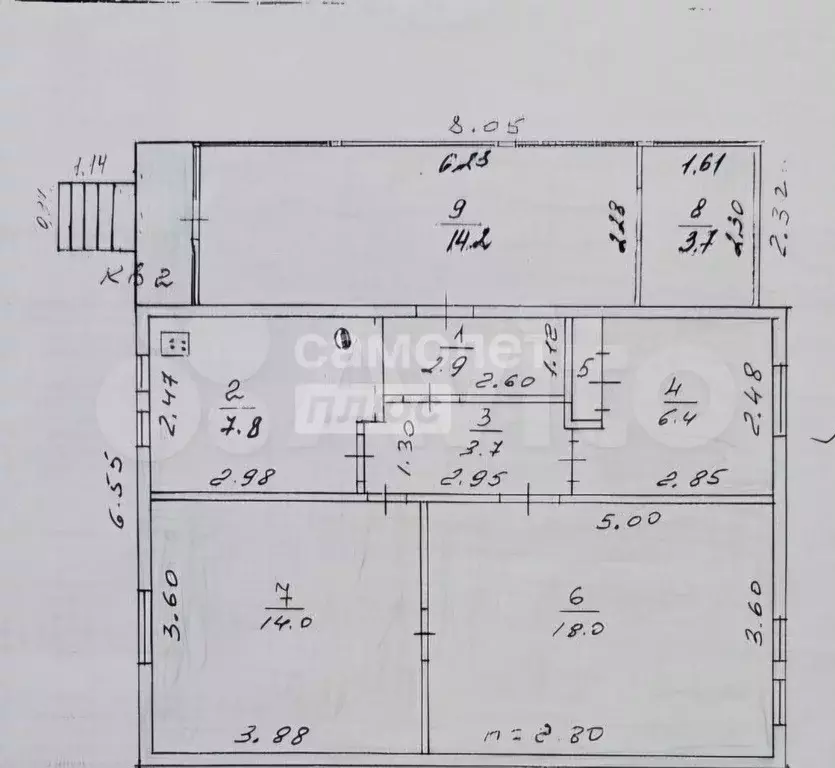 8.05
1.14
6.23
1.61
9
14.2
2.28
8
3.7
2.30
2.32
КВ 2
1
2.9
1.12
2.60
5
2.47
2
7.8
2.98
самолет
плюс
3
3.7
1.30
2.95
4
6.4
2.48
2.85
6.55
5.00
3.60
7
14.0
3.88
6
18.0
3.60
h = 2.80